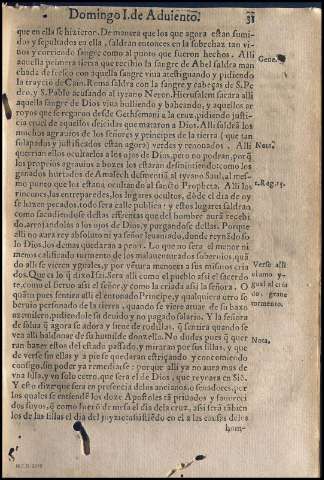 Domingo I. de Aduiento. 38
que en ella se hizieron. De manera que los que agora estan sumi-
dos y sepultados en ella, saldran entonces en la sobrehaz tan vi-
uos y corriendo sangre como al punto que fueron hechos. Alli
aquella primera tierra que recibio la sangre de Abel saldra man
chada de fresco con aquella sangre viua atestiguando y pidiendo
la trayció de Cain. Roma saldra con la sangre y cabeças de S. Pe
dro, y S. Pablo acusando al tyrano Neron. Hierusalem sacara alli
aquella sangre de Dios viua bulliendo y baheando, y aquellos ar
royos que se regaron desde Gethsemani a la cruz, pidiendo justi-
cia cruel de aquellos deicidas que mataron a Dios. Alli saldrá los
muchos agrauios de los señores y principes de la tierra (que tan
solapados y justificados estan agora) verdes y renouados. Alli
querrian ellos ocultarlos a los ojos de Dios, pero no podran, porq̃
los proprios agrauios a bozes los estaran desmintiendo: como los
ganados hurtados de Amalech desmentiã al tyrano Saul, al mes-
mo punto que los estaua ocultando al sancto Propheta. Alli los
rincones, las entrepañes, los lugares ocultos, dõde el dia de oy
se hazen pecados, todo sera calle publica: y estos lugares saldran
como sacudiendose destas
do, arrojandolas a los ojos de Dios, y purgandose dellas. Porque
alli no aura rey absoluto ni ya señor leuantado, donde reynãdo so
lo Dios, los demas quedaran a peon. Lo que no sera el menor ni
menos calificado tormento de los malauenturados soberuios, quã
do alli se vieren yguales, y por vẽtura menores a sus mismos cria
dos. Que es lo q̃ dixo Isai. Sera alli como el pueblo assi el sacerdo
te, como el sieruo assi el señor, y como la criada assi la señora. O
quãto pues sentira alli el entonado Principe, y qualquiera otro so
beruio personado de la tierra, quando se viere
pidiendole su deuido y no pagado salario. Y la señora
de salua q̃ agora se adora y sirue de rodillas, q̃ sentira quando se
vea alli baldonar de su humilde donzella. No dudes pues q̃ quer
ran hazer estos del estado passado, y mirar no por sus sillas, y que
de verse sin ellas y a pie se quedaran estrujando y concomiendo
consigo, sin poder ya remediarse: porque alli ya no aura mas de
vna silla, y vn solo cetro, que sera el de Dios, que reynara en Siõ.
Y esto dize que sera en presencia de los ancianos, o senadores, por
los quales se entiendẽ los doze Apostoles tã priuados y fauoreci
dos suyos, q̃ como fuerõ de mesa el dia de la cruz, assi serã tãbien
los de las sillas el dia del juyzio: assistiẽdo en el a las causas de los
hom-
Gene. 4.
Nota.
1. Reg. 15.
Verse alli
ygual al cria
do, grane
tormento.
Nota,